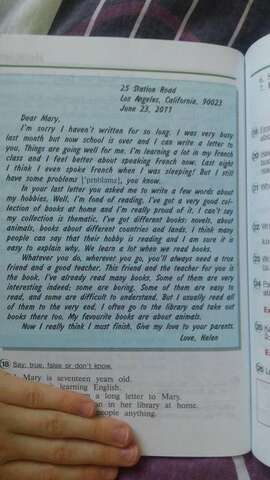 25 Station Road
Los Angeles, California, 90023
June 23, 20TT
Dear Mary,
I'm sorry I haven't written for so long. I was very busy
last month but now school is over and I can write a letter to
you. Things are going well for me. I'm learning a lot in my French
class and I feel better about speaking French now. Last night
I think I even spoke French when I was sleeping! But I still
have some problems ['prɒbləmz], you know.
In your last letter you asked me to write a few words about
my hobbies. Well, I'm fond of reading. I've got a very good col-
lection of books at home and I'm really proud of it. I can't say
my collection is thematic. I've got different books: novels, about
animals, books about different countries and lands. I think many
people can say that their hobby is reading and I am sure it is
easy to explain why. We learn a lot when we read books.
Whatever you do, wherever you go, you'll always need a true
friend and a good teacher. This friend and the teacher for you is
the book. I've already read many books. Some of them are very
interesting indeed; some are boring. Some of them are easy to
read, and some are difficult to understand. But I usually read all
of them to the very end. I often go to the library and take out
books there too. My favourite books are about animals.
Now I really think I must finish. Give my love to your parents.
Love, Helen
18 Say, true, false or don't know.
Mary is seventeen years old.
learning English.
a long letter to Mary.
in her library at home.
people anything.